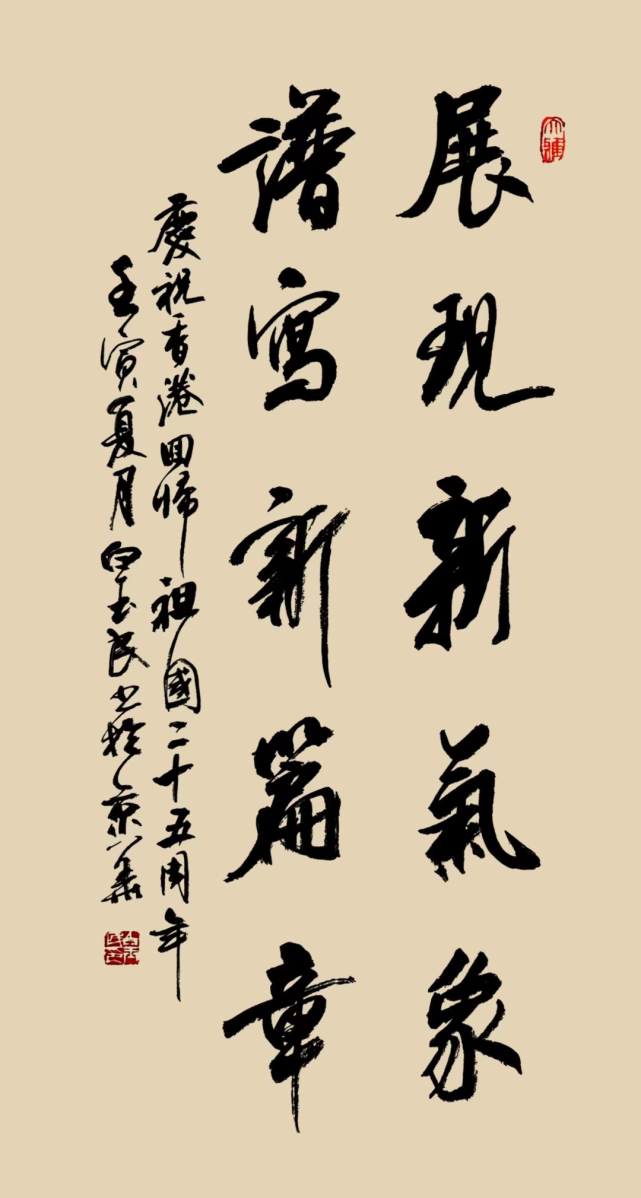 展現新氣象
譜寫新篇章
慶祝香港回歸祖國二十五周年
壬寅夏月白玉民书於京華